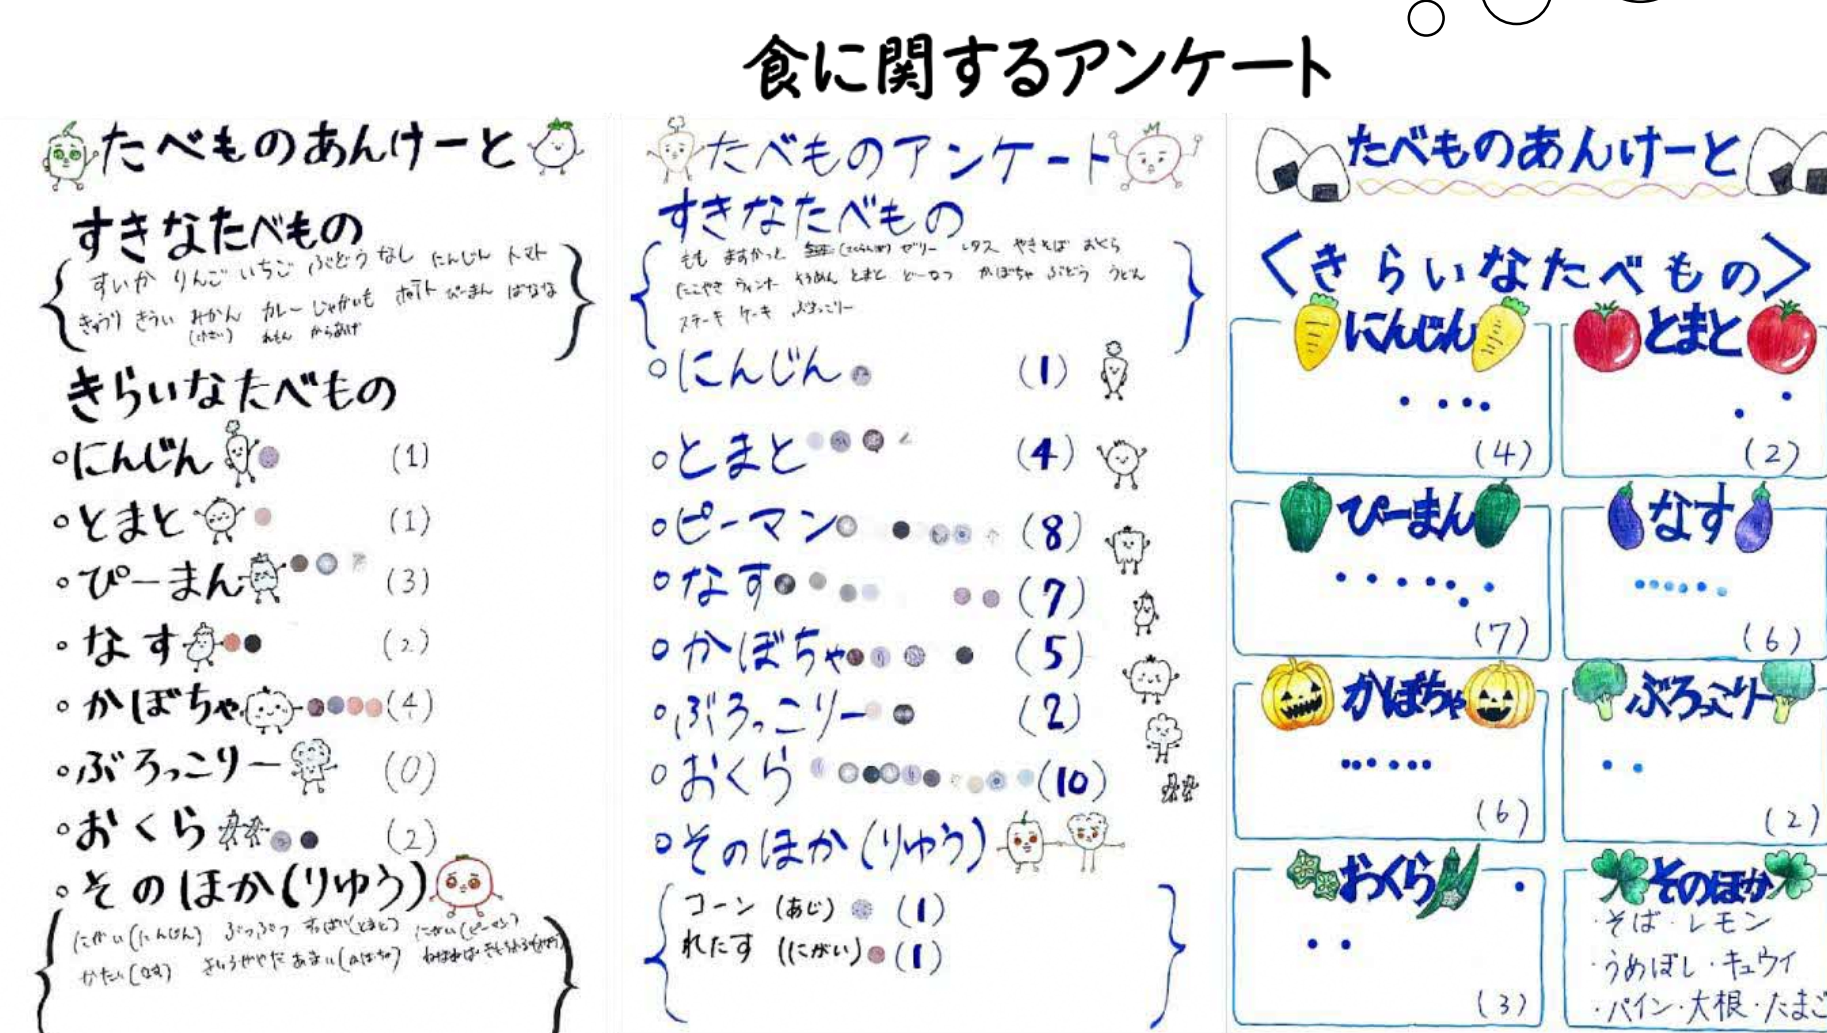 食に関するアンケート
たべものあんけーと
すきなたべもの
すいか りんご いちご ぶどう なし にんじん トマト
きゅうり きうい みかん カレー じゃがいも ポテト ぴーまん ばなな
れもん からあげ
きらいなたべもの
にんじん (1)
とまと (1)
ぴーまん (3)
なす (2)
かぼちゃ (4)
ぶろっこりー (0)
おくら (2)
そのほか(りゆう)
にがい(にんじん) ぶつぶつ すっぱい(とまと) にがい(ピーマン)
かたい(なす) あまい(かぼちゃ)
たべものアンケート
すきなたべもの
もも ますかっと ゼリー レタス やきそば おくら
たこやき ウィンナー そうめん とまと どーなつ かぼちゃ ぶどう うどん
ステーキ ケーキ ぶろっこりー
にんじん (1)
とまと (4)
ピーマン (8)
なす (7)
かぼちゃ (5)
ぶろっこりー (2)
おくら (10)
そのほか(りゆう)
コーン (あじ) (1)
れたす (にがい) (1)
たべものあんけーと
<きらいなたべもの>
にんじん
(4)
とまと
(2)
ぴーまん
(7)
なす
(6)
かぼちゃ
(6)
ぶろっこりー
(2)
おくら
(3)
そのほか
・そば・レモン
・うめぼし・キュウイ
・パイン・大根・たまご